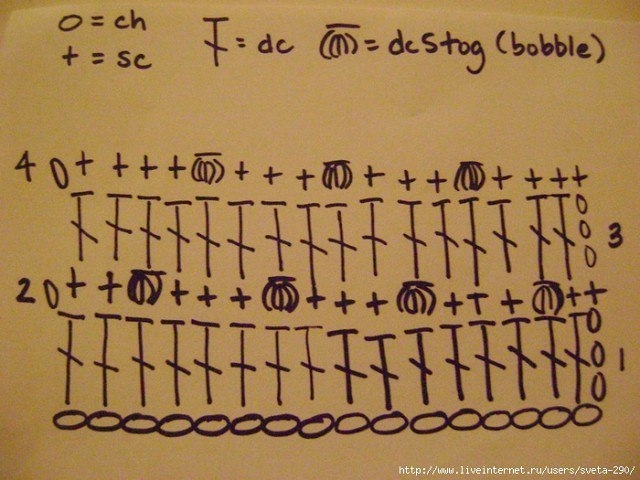 o = ch
+ = sc
= dc
= dc5tog (bobble)
4
3
2
1
http://www.liveinternet.ru/users/sveta-290/